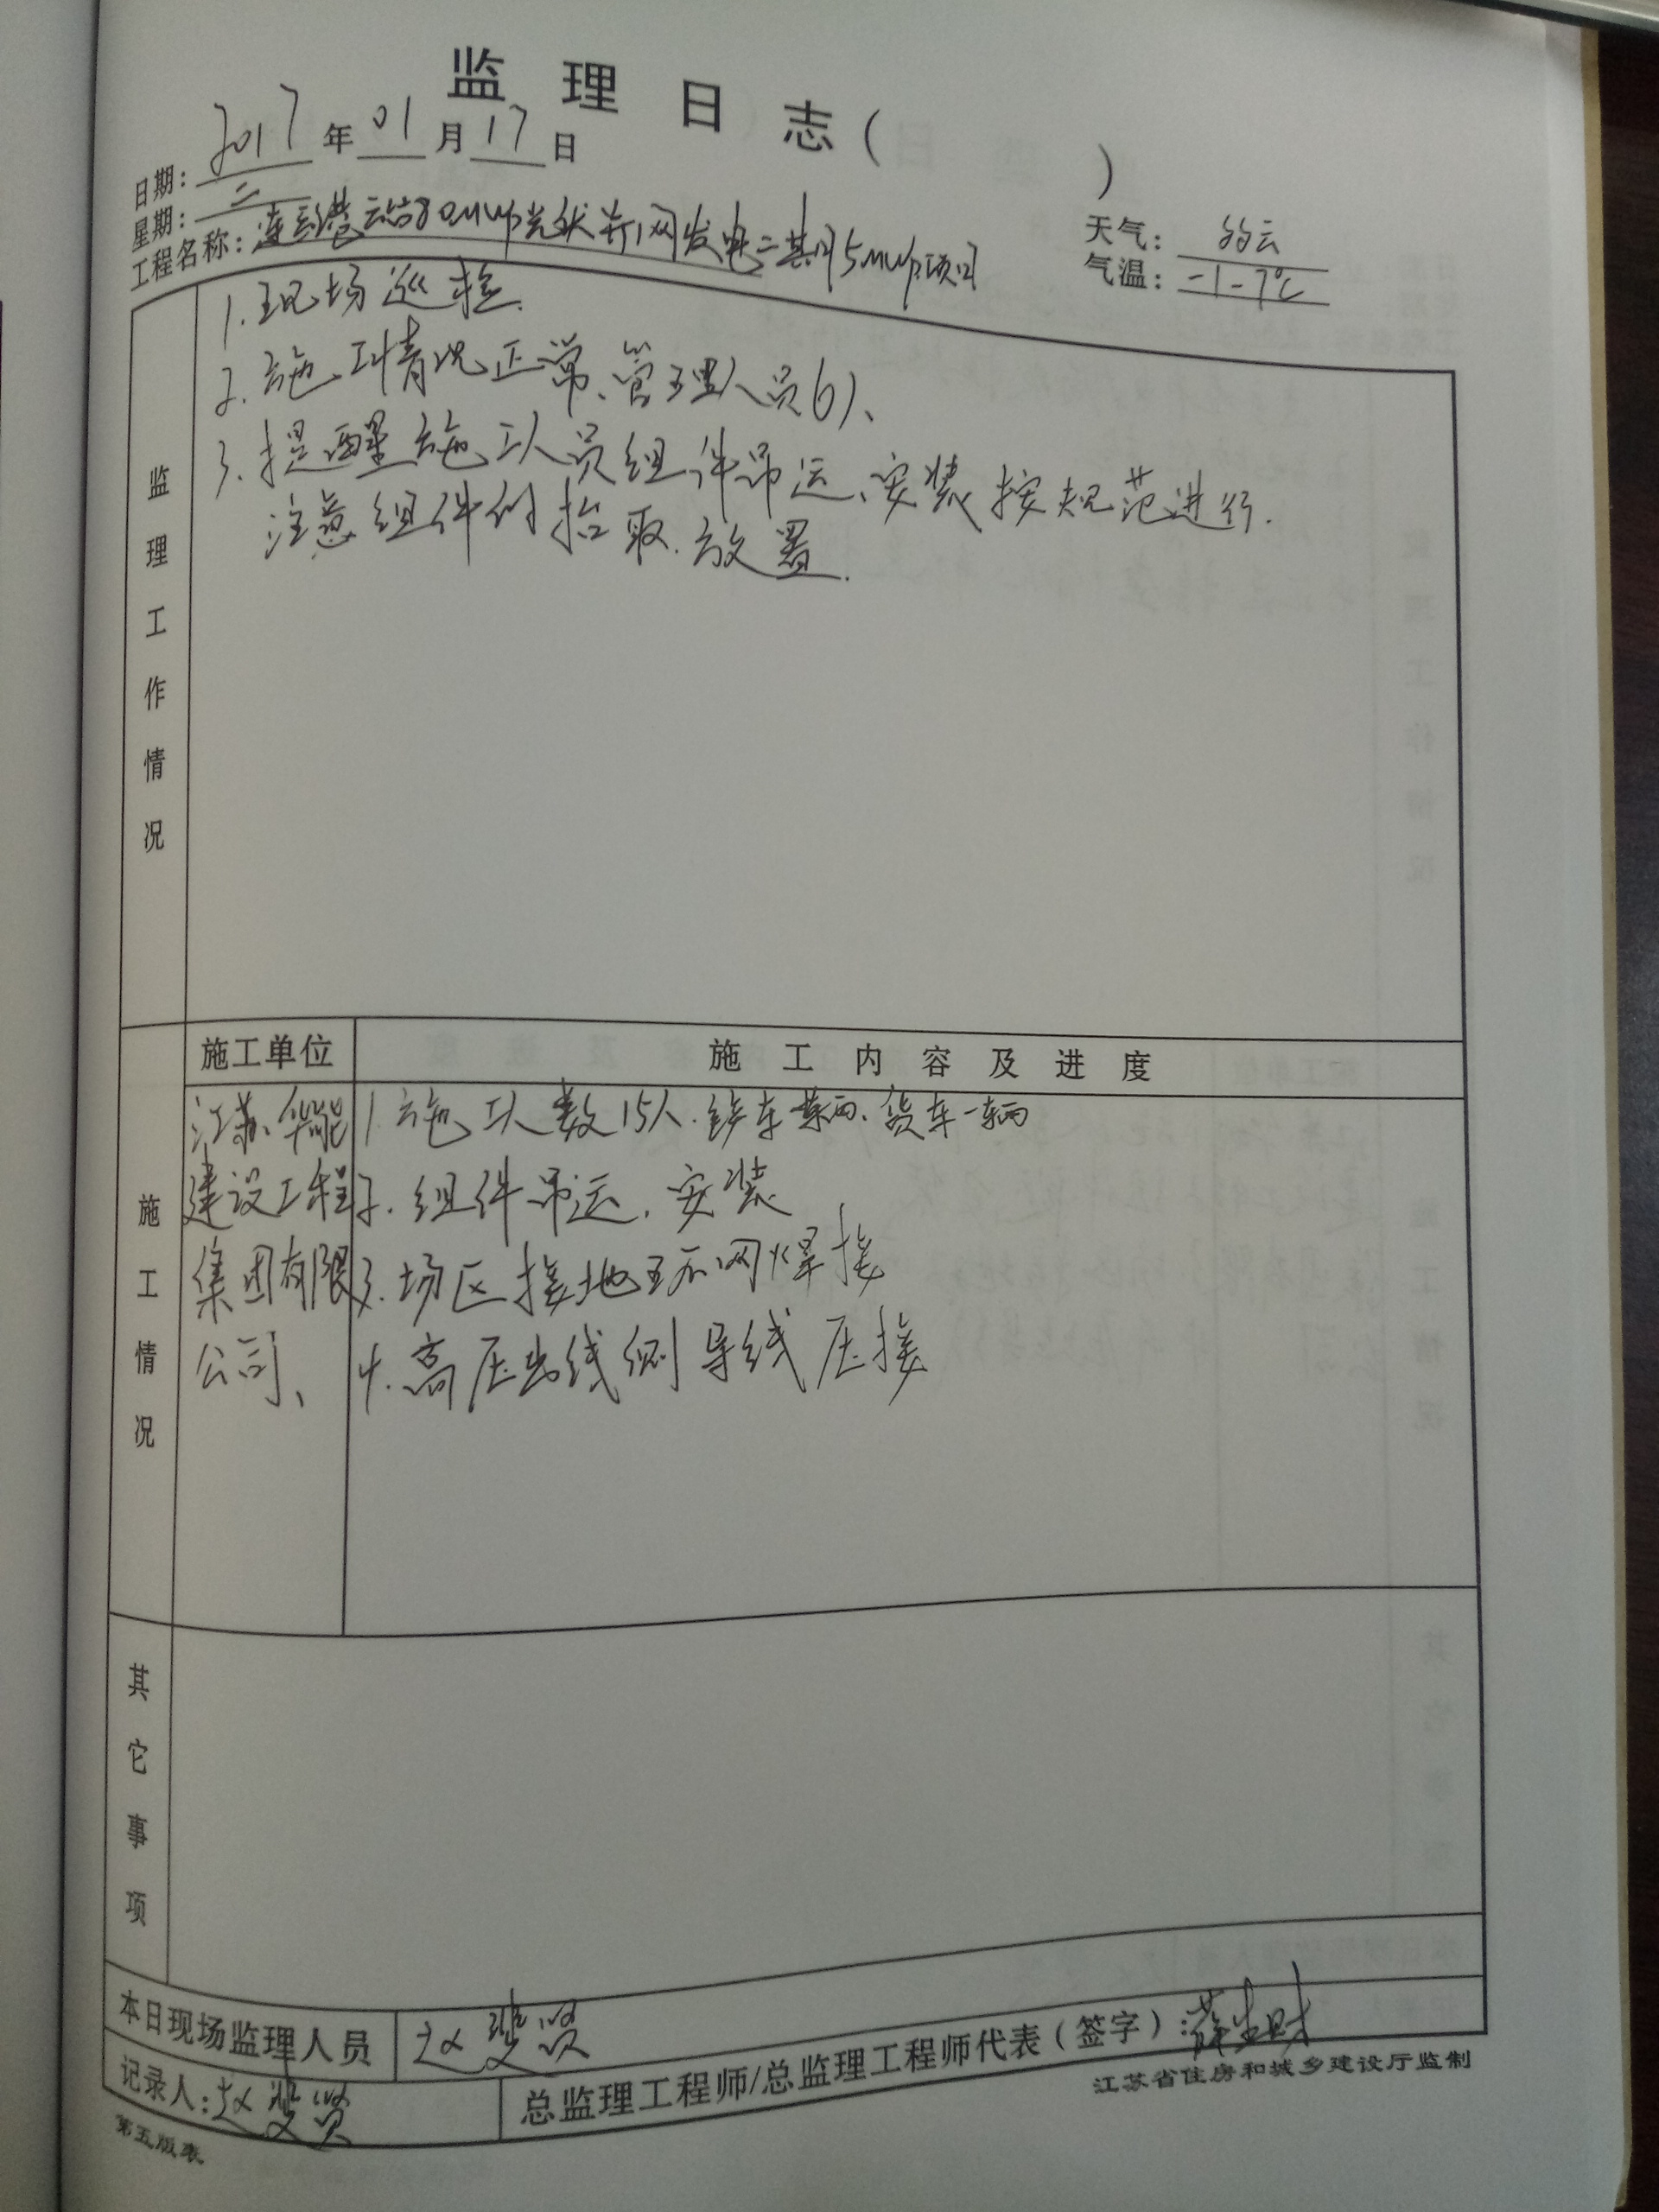 监理日志( )
日期: 2017 年 01 月 17 日
星期: 二
工程名称: 连云港云台80MWp光伏并网发电二期15MWp项目
天气: 多云
气温: -1-7℃
监理工作情况
1.现场巡检.
2.施工情况正常、管理人员6人、
3.提醒施工人员组件吊运、安装按规范进行.
注意组件的抬取.放置.
施工单位
施工内容及进度
施工情况
江苏华能
建设工程
集团有限
公司、
1.施工人数15人. 车 辆、货车一辆
2.组件吊运.安装
3.场区接地 网焊接
4.高压出线侧导线压接
其它事项
本日现场监理人员 赵 贤
记录人: 赵 贤
总监理工程师/总监理工程师代表(签字): 薛 财
江苏省住房和城乡建设厅监制
第五版表